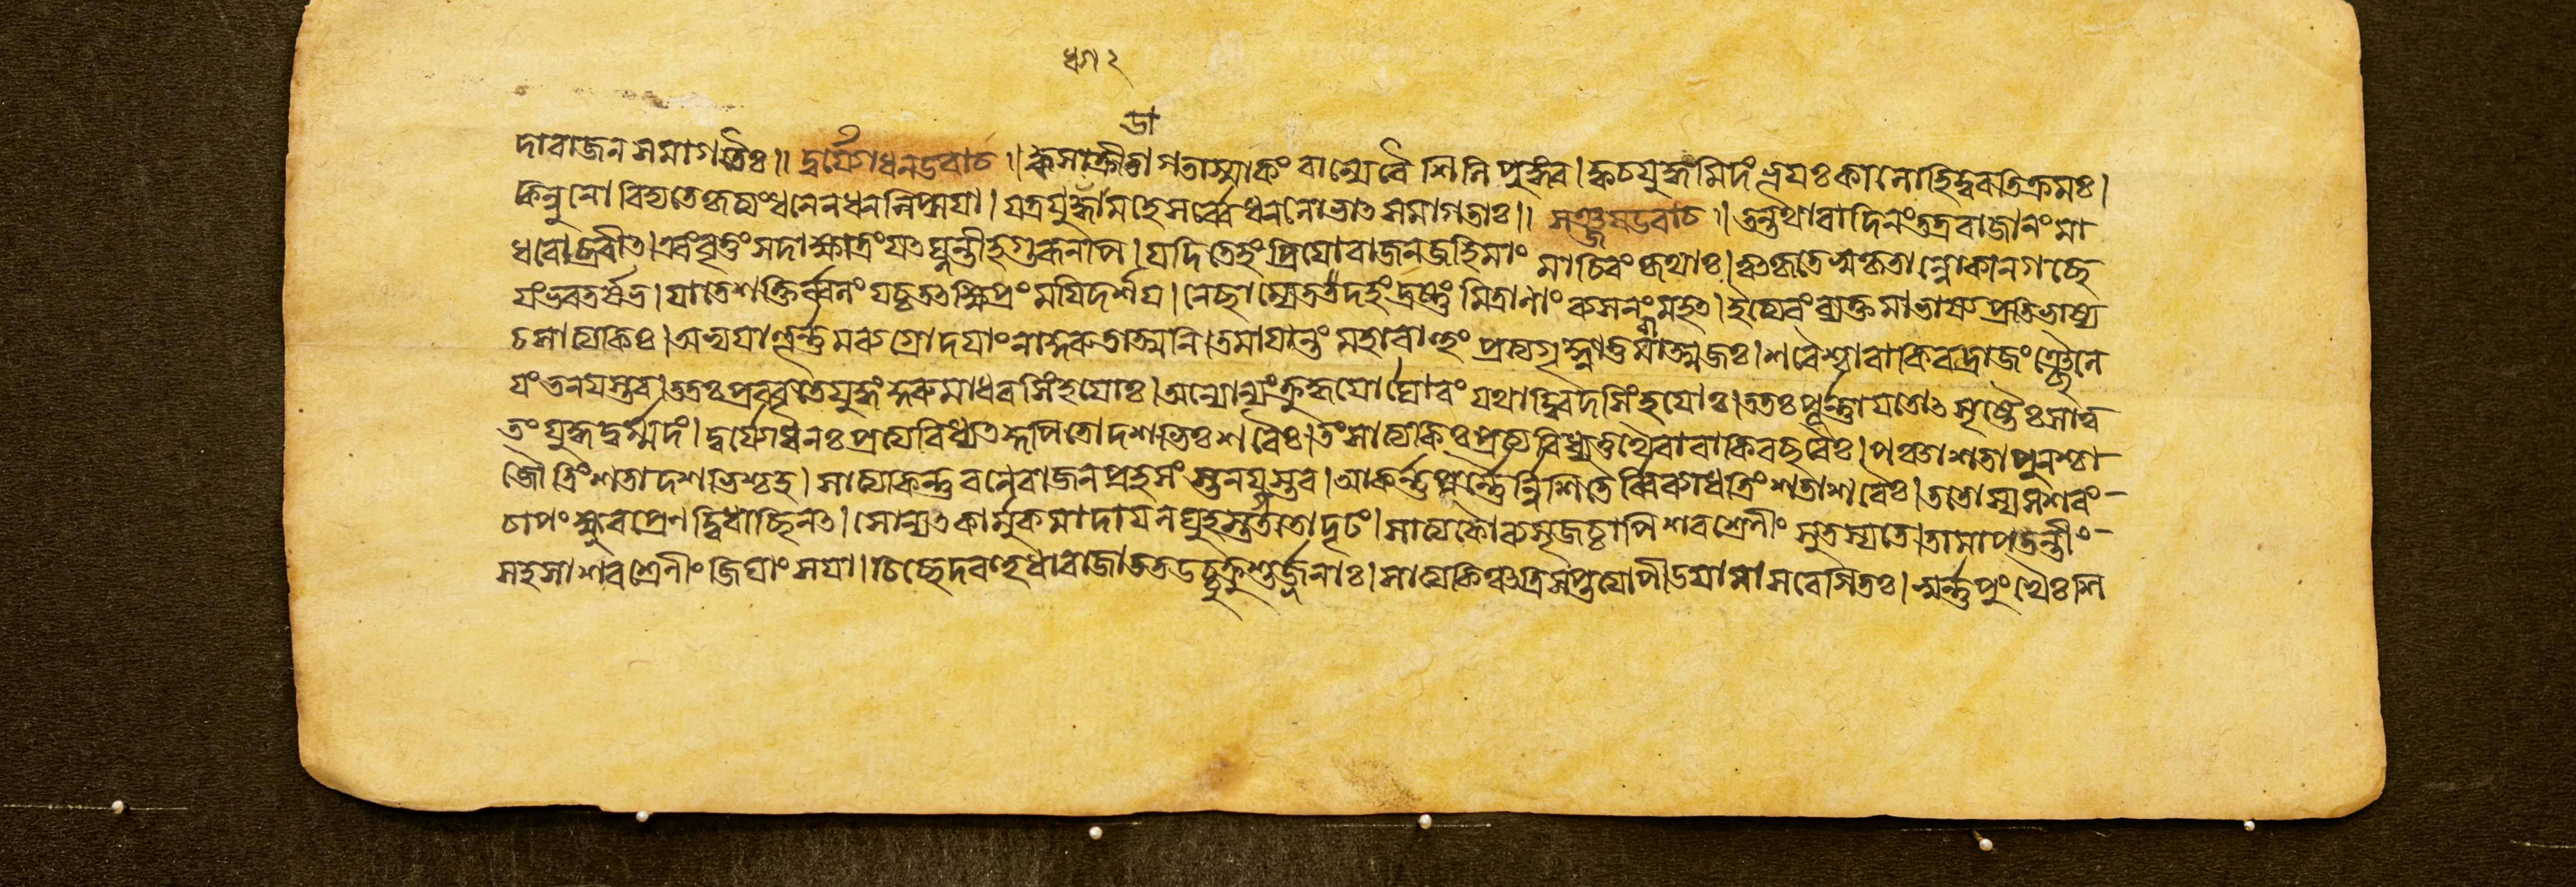 ধ্রণ ২
ডা
দারাজনসমাগতৈঃ॥ দুর্যোধনউবাচ॥ ক্বসাক্রীডাগতাস্মাকং বাল্যেবৈ শিনিপুঙ্গব।ক্বচযুদ্ধমিদংভূয়ঃকালোহিদুরতিক্রমঃ।
কিন্নুনো বিদ্যতেকৃত্যংধনেনধনলিপ্সয়া।যত্রযুদ্ধ্যামহেসর্ব্বেধনলোভাৎসমাগতাঃ॥ সঞ্জয়উবাচ॥তন্তথাবাদিনংতত্ররাজানংমা
ধবোব্রবীৎ।এবংবৃত্তংসদাক্ষাত্রংযৎঘ্নন্তীহগুরূনপি।যদিতেহংপ্রিয়োরাজনজহিমাং মাচিরং কৃথাঃ।ত্বৎকৃতেসুকৃতাল্লোকানগচ্ছে
য়ংভরতর্ষভ।যাতেশক্তির্ব্বলংযচ্চতৎক্ষিপ্রং ময়িদর্শয়।নেচ্ছাম্যেতত্তদহংদ্রষ্টুং মিত্রাণাং ব্যসনংমহৎ।ইত্যেবংব্যক্তমাভাষ্য প্রতিভাষ্য
চসাত্যকিঃ।অভ্যয়াত্তূর্ন্নমব্যগ্রোদয়াংনাকরুতাত্মনি।তমায়ান্তং মহাবাহুং প্রত্যগৃহ্নাত্তবাত্মজঃ।শরৈশ্চাবাকিরদ্রাজংঞ্ছৈনে
য়ংতনয়স্তব।ততঃপ্রববৃতেযুদ্ধংকুরুমাধবসিংহয়োঃ।অন্যোন্যংক্রুদ্ধয়োর্ঘোরং যথাদ্বিরদসিংহয়োঃ।ততঃপূর্ন্নায়তোৎসৃষ্টৈঃসাত্ব
তংযুদ্ধদুর্ম্মদং।দুর্যোধনঃপ্রত্যবিধ্যৎ দশভিঃশরৈঃ।তংসাত্যকিঃপ্রত্যবিধ্যত্তথৈবাবাকিরচ্ছরৈঃ।পঞ্চাশতাপুনশ্চা
জৌ ত্রিংশতাদশভিশ্চহ।সাত্যকিন্তুরনেরাজনপ্রহসংস্তনয়স্তব।আকর্ন্নপূর্ন্নৈর্ন্নিশিতৈর্ব্বিব্যাধত্রিংশতাশরৈঃ।ততোস্যসশরং-
চাপং ক্ষুরপ্রেনদ্বিধাচ্ছিনৎ।সোন্যৎকার্মুকমাদায়লঘুহস্তস্ততোদৃঢং।সাত্যকির্ব্যসৃজচ্চাপিশরশ্রেনীং সুতস্যতে।তামাপতন্তীং-
সহসাশরশ্রেনীং জিঘাংসয়া।চিচ্ছেদবহুধারাজাততউচ্চুক্রুশুর্জ্জনাঃ।সাত্যকিঞ্চত্রিসপ্তত্যাপীডয়ামাসবেগিতঃ।স্বর্ন্নপুংখৈঃশি